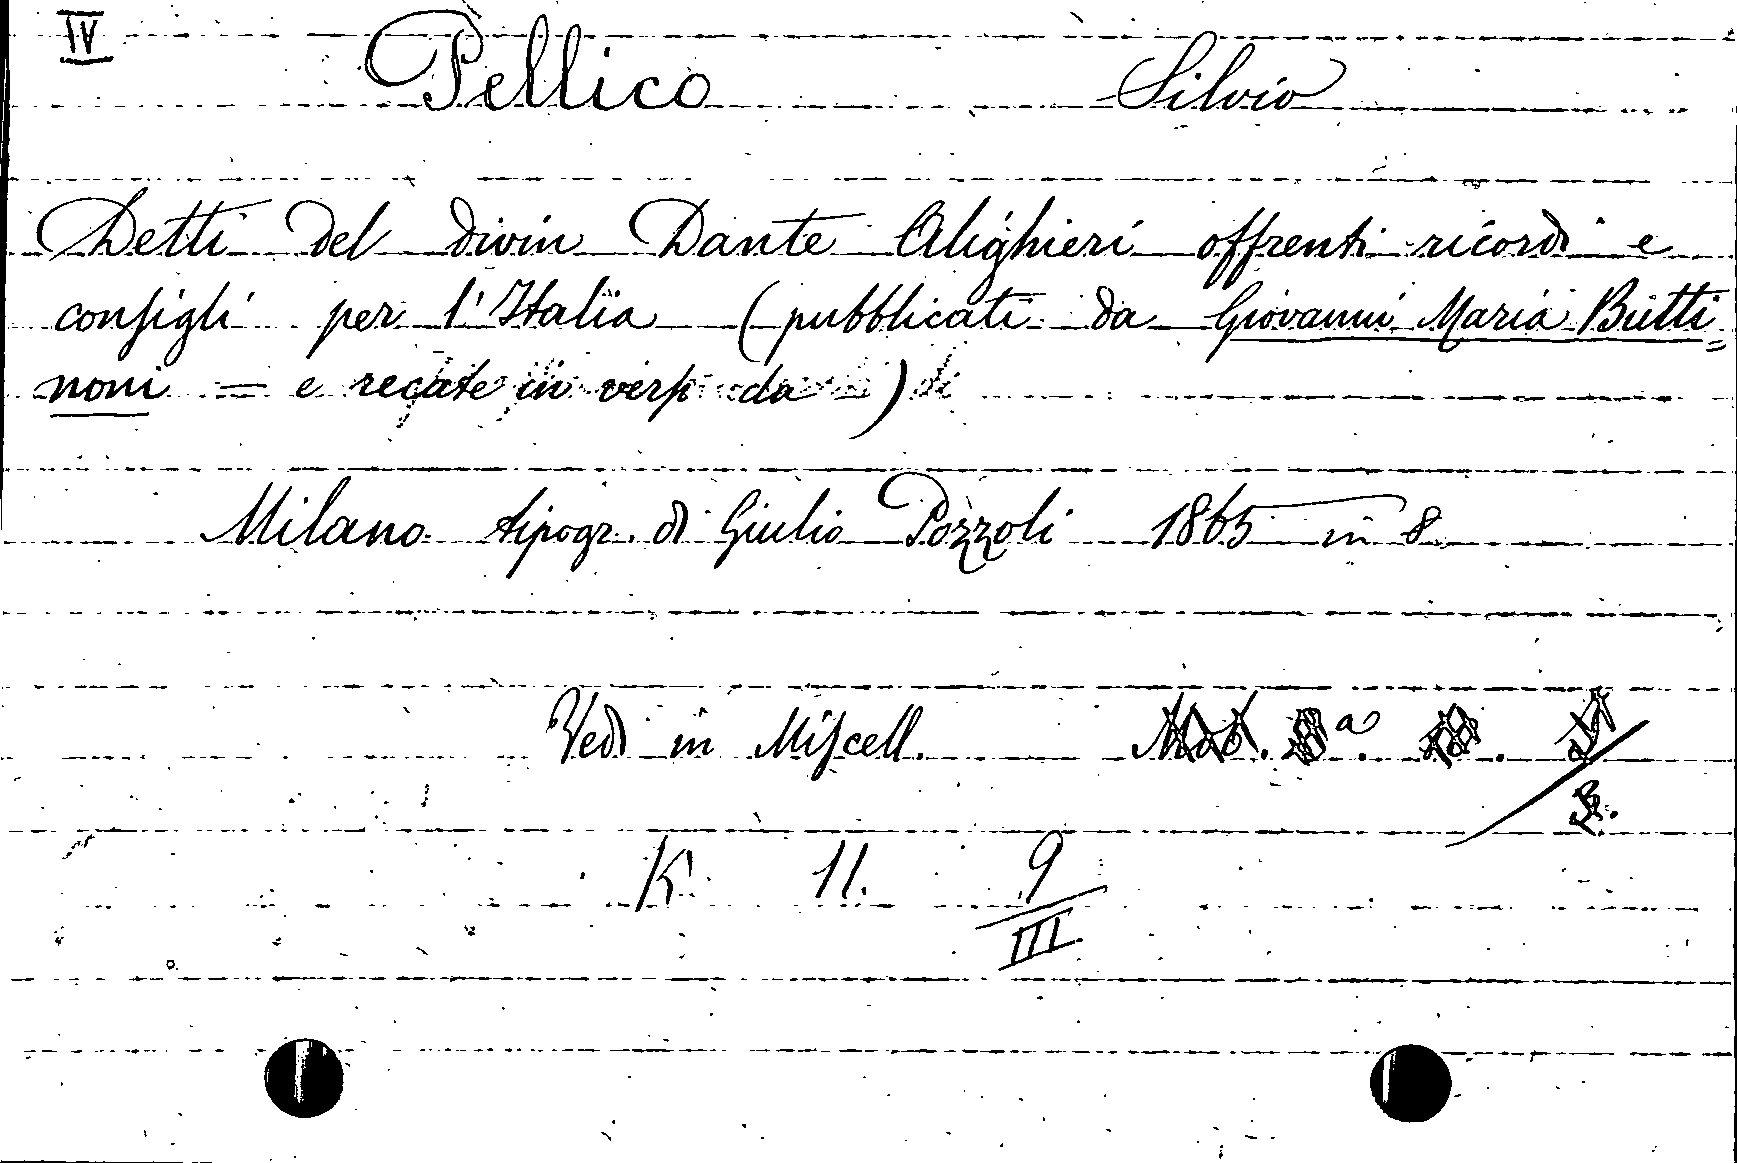 IV Pellico Silvio
Detti del divin Dante Alighieri offrenti ricordi e
consigli per l'Italia (pubblicati da Giovanni Maria Butti=
noni = e recate in versi da ) di
Milano tipogr. di Giulio Pozzoli 1865 in 8
Vedi in Miscell.
K 11. 9
III